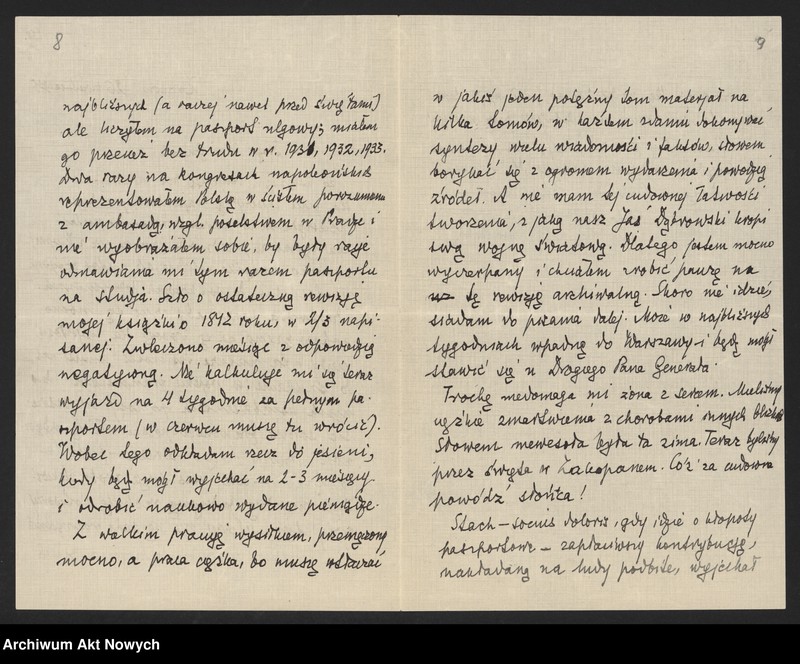 8
najbliższych (a raczej nawet przed świętami)
ale liczyłem na paszport ulgowy; miałem
go przecież bez trudu w r. 1931, 1932, 1933.
Dwa razy na kongresach napoleońskich
reprezentowałem Polskę w ścisłem porozumieniu
z ambasadą, wzgl. poselstwem w Pradze i
nie wyobrażałem sobie, by były racje
odmawiania mi tym razem paszportu
na studja. Szło o ostateczną rewizję
mojej książki o 1812 roku, w 2/3 napi-
sanej. Zwleczono miesiąc z odpowiedzią
negatywną. Nie kalkuluje mi się teraz
wyjazd na 4 tygodnie za pełnym pa-
szportem (w czerwcu muszę tu wrócić).
Wobec tego odkładam rzecz do jesieni,
kiedy będę mógł wyjechać na 2-3 miesięcy
i odrobić naukowo wydane pieniądze.
Z wielkim pracuję wysiłkiem, przemęczony
mocno, a praca ciężka, bo muszę wtłaczać
9
w jakiś jeden potężny tom materjał na
kilka tomów, w każdem zdaniu dokonywać
syntezy wielu wiadomości i faktów, słowem
borykać się z ogromem wydarzenia i powodzią
źródeł. A nie mam tej cudownej łatwości
tworzenia, z jaką nasz Jaś Dąbrowski kropi
swą wojnę światową. Dlatego jestem mocno
wyczerpany i chciałem zrobić pauzę na
tę rewizję archiwalną. Skoro nie idzie,
siadam do pisania dalej. Może w najbliższych
tygodniach wpadnę do Warszawy i będę mógł
stawić się u Drogiego Pana Generała.
Trochę niedomaga mi żona z sercem. Mieliśmy
ciężkie zmartwienia z chorobami innych bliskich
Słowem niewesoła była ta zima. Teraz byliśmy
przez święta w Zakopanem. Cóż za cudowna
powódź słońca!
Stach – socius doloris, gdy idzie o kłopoty
paszportowe – zapłaciwszy kontrybucję,
nakładaną na ludy podbite, wyjechał
Archiwum Akt Nowych